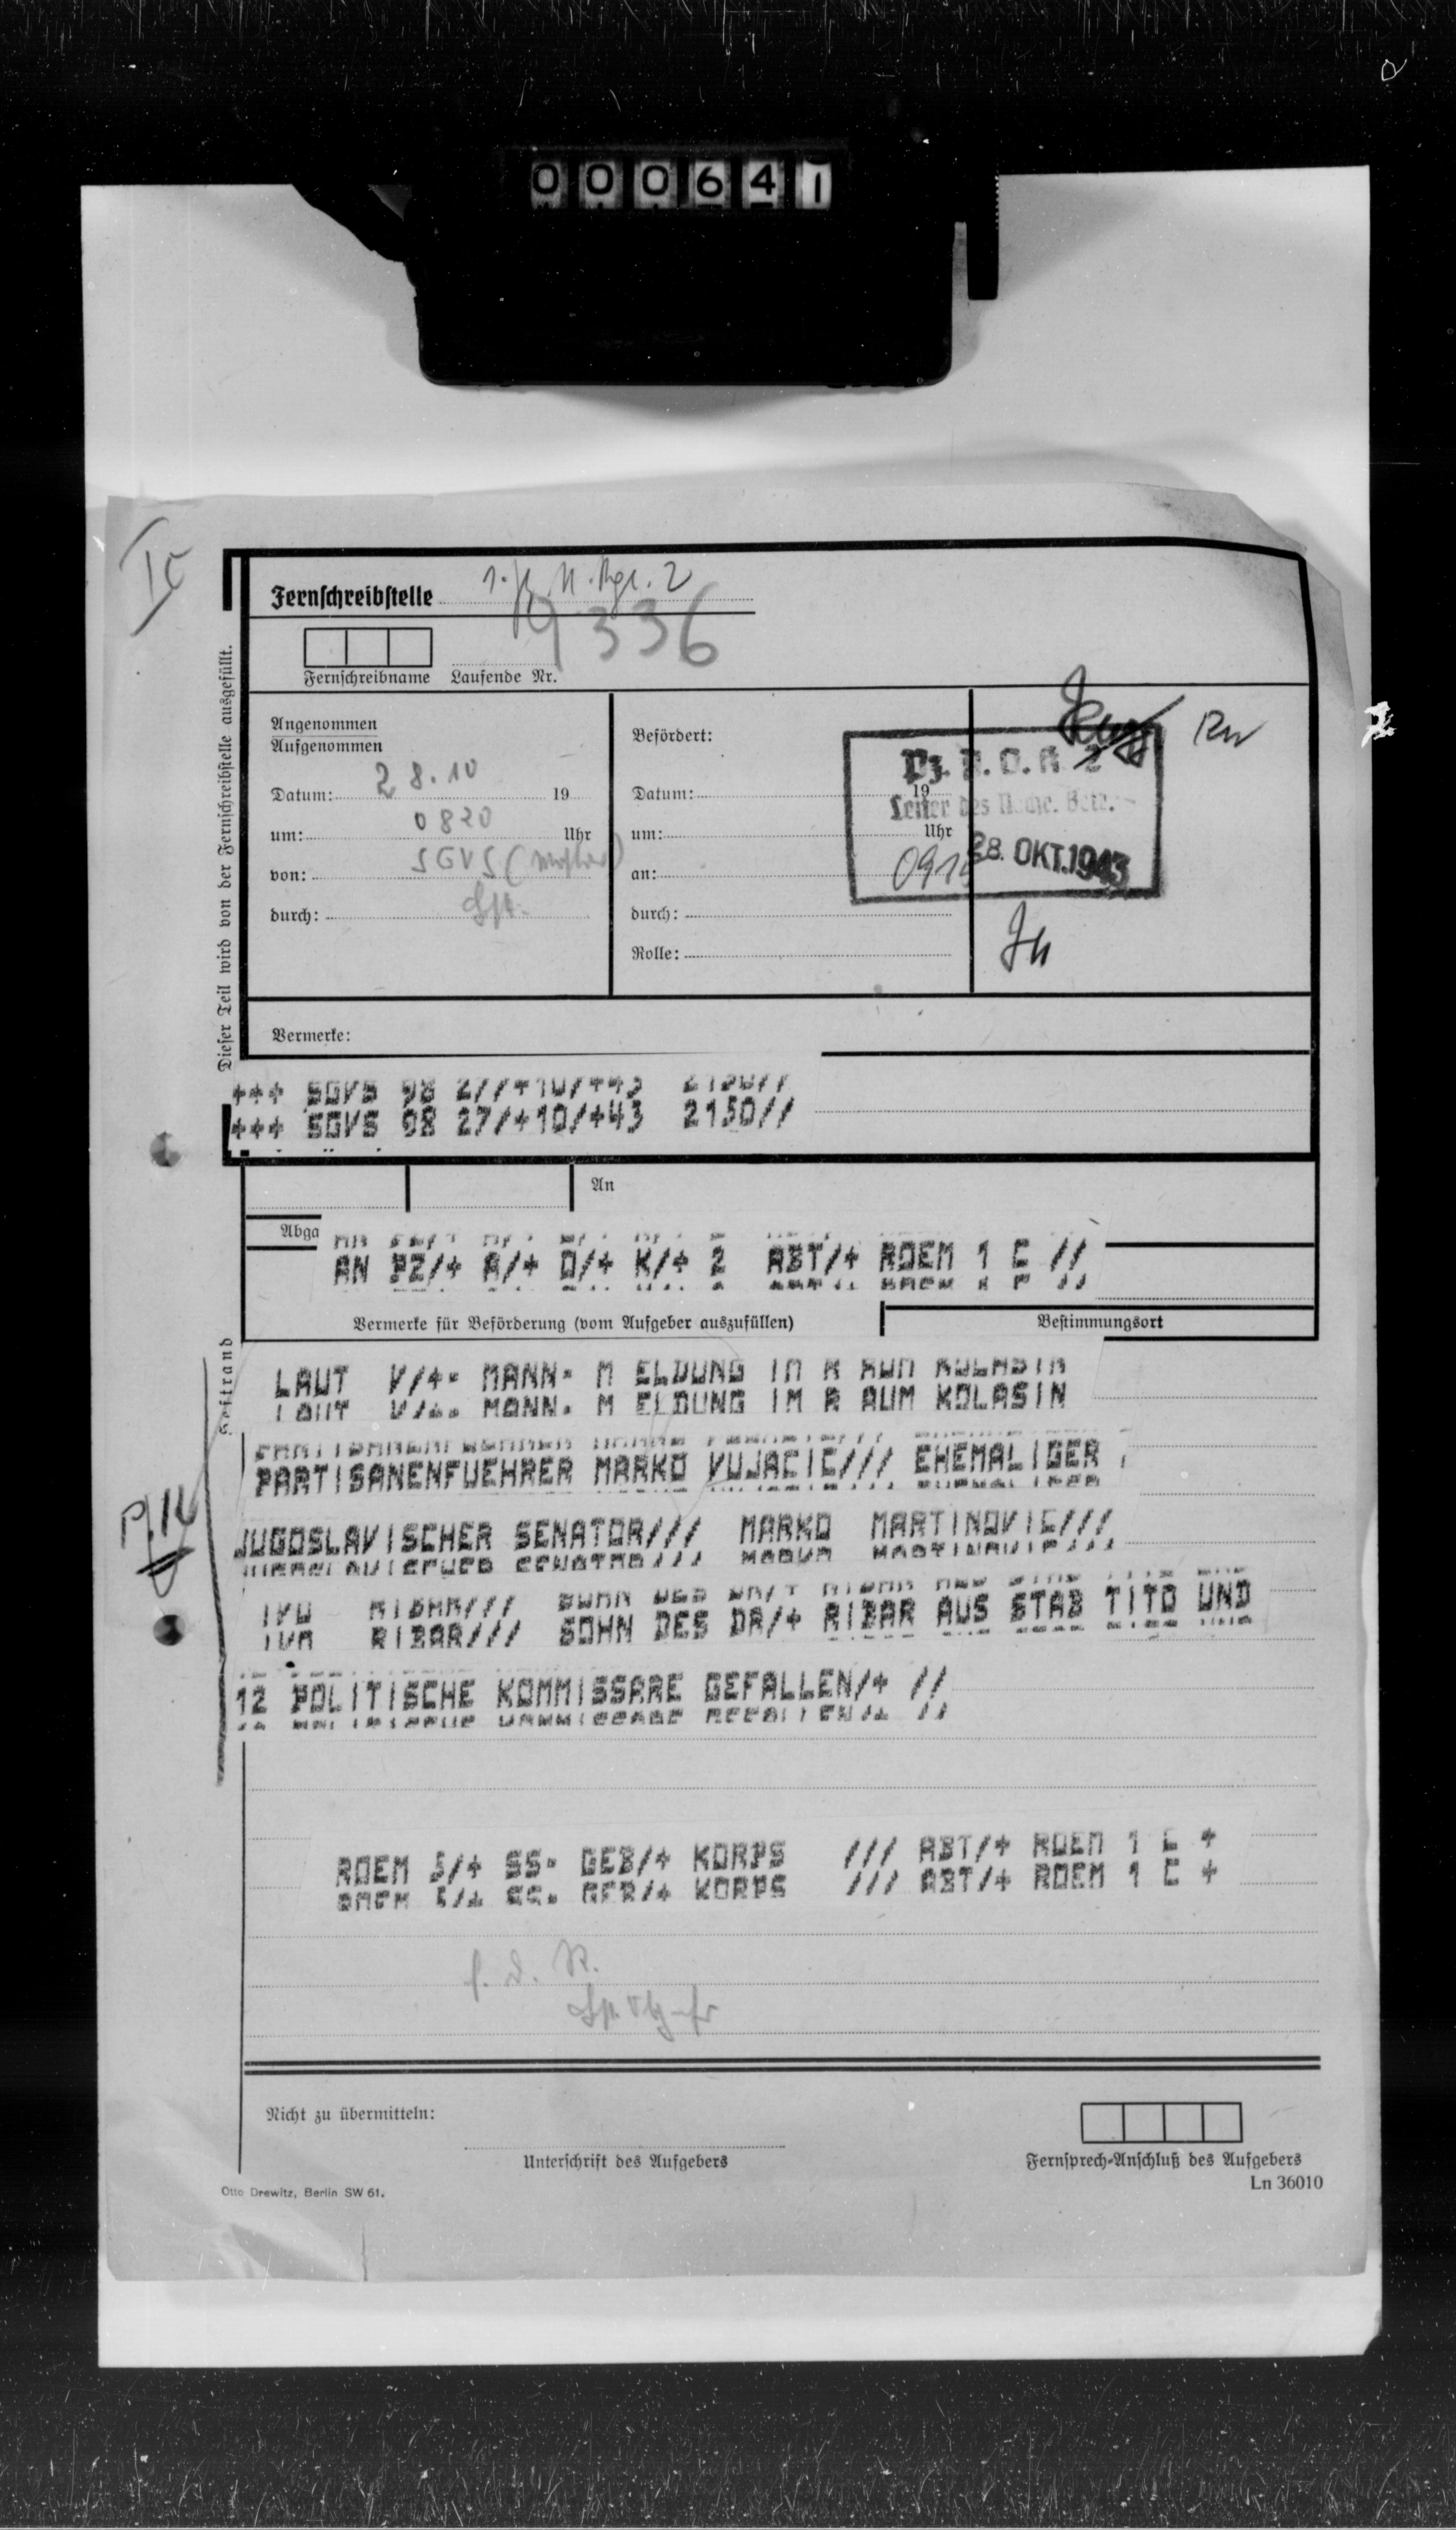 000641
Ic
Fernschreibstelle
9336
Fernschreibname Laufende Nr.
Dieser Teil wird von der Fernschreibstelle ausgefüllt.
Angenommen
Aufgenommen
Datum: 28.10 19
um: 0820 Uhr
von: SGVS
durch:
Befördert:
Datum: 19
um: Uhr
an:
durch:
Rolle:
Pz. A.O.K 2
0915
28. OKT. 1943
Vermerke:
+++ SGVS 98 27/+10/+43 2150//
+++ SGVS 98 27/+10/+43 2150//
An
Abga
AN PZ/+ A/+ O/+ K/+ 2 ABT/+ ROEM 1 C //
Vermerke für Beförderung (vom Aufgeber auszufüllen)
Bestimmungsort
LAUT V/+- MANN- M ELDUNG IM R AUM KOLASIN
LAUT V/+- MANN- M ELDUNG IM R AUM KOLASIN
PARTISANENFUEHRER MARKO VUJACIC/// EHEMALIGER
JUGOSLAVISCHER SENATOR/// MARKO MARTINOVIC///
IVO RIBAR/// SOHN DES DR/+ RIBAR AUS STAB TITO UND
12 POLITISCHE KOMMISSARE GEFALLEN/+ //
ROEM 5/+ SS- GEB/+ KORPS /// ABT/+ ROEM 1 C +
ROEM 5/+ SS- GEB/+ KORPS /// ABT/+ ROEM 1 C +
f. d. R.
Nicht zu übermitteln:
Unterschrift des Aufgebers
Fernsprech-Anschluß des Aufgebers
Otto Drewitz, Berlin SW 61.
Ln 36010